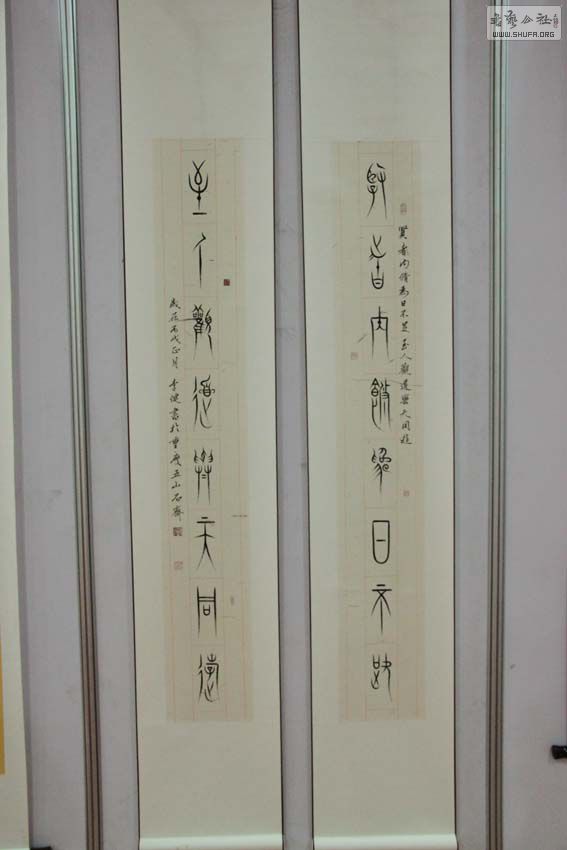 書藝公社
WWW.SHUFA.ORG
賢者內脩為日不足
賢者內脩為日不足至人觀遠與天同遊
至人觀遠與天同遊
歲在丙戌正月 李健書於重慶五山石齋